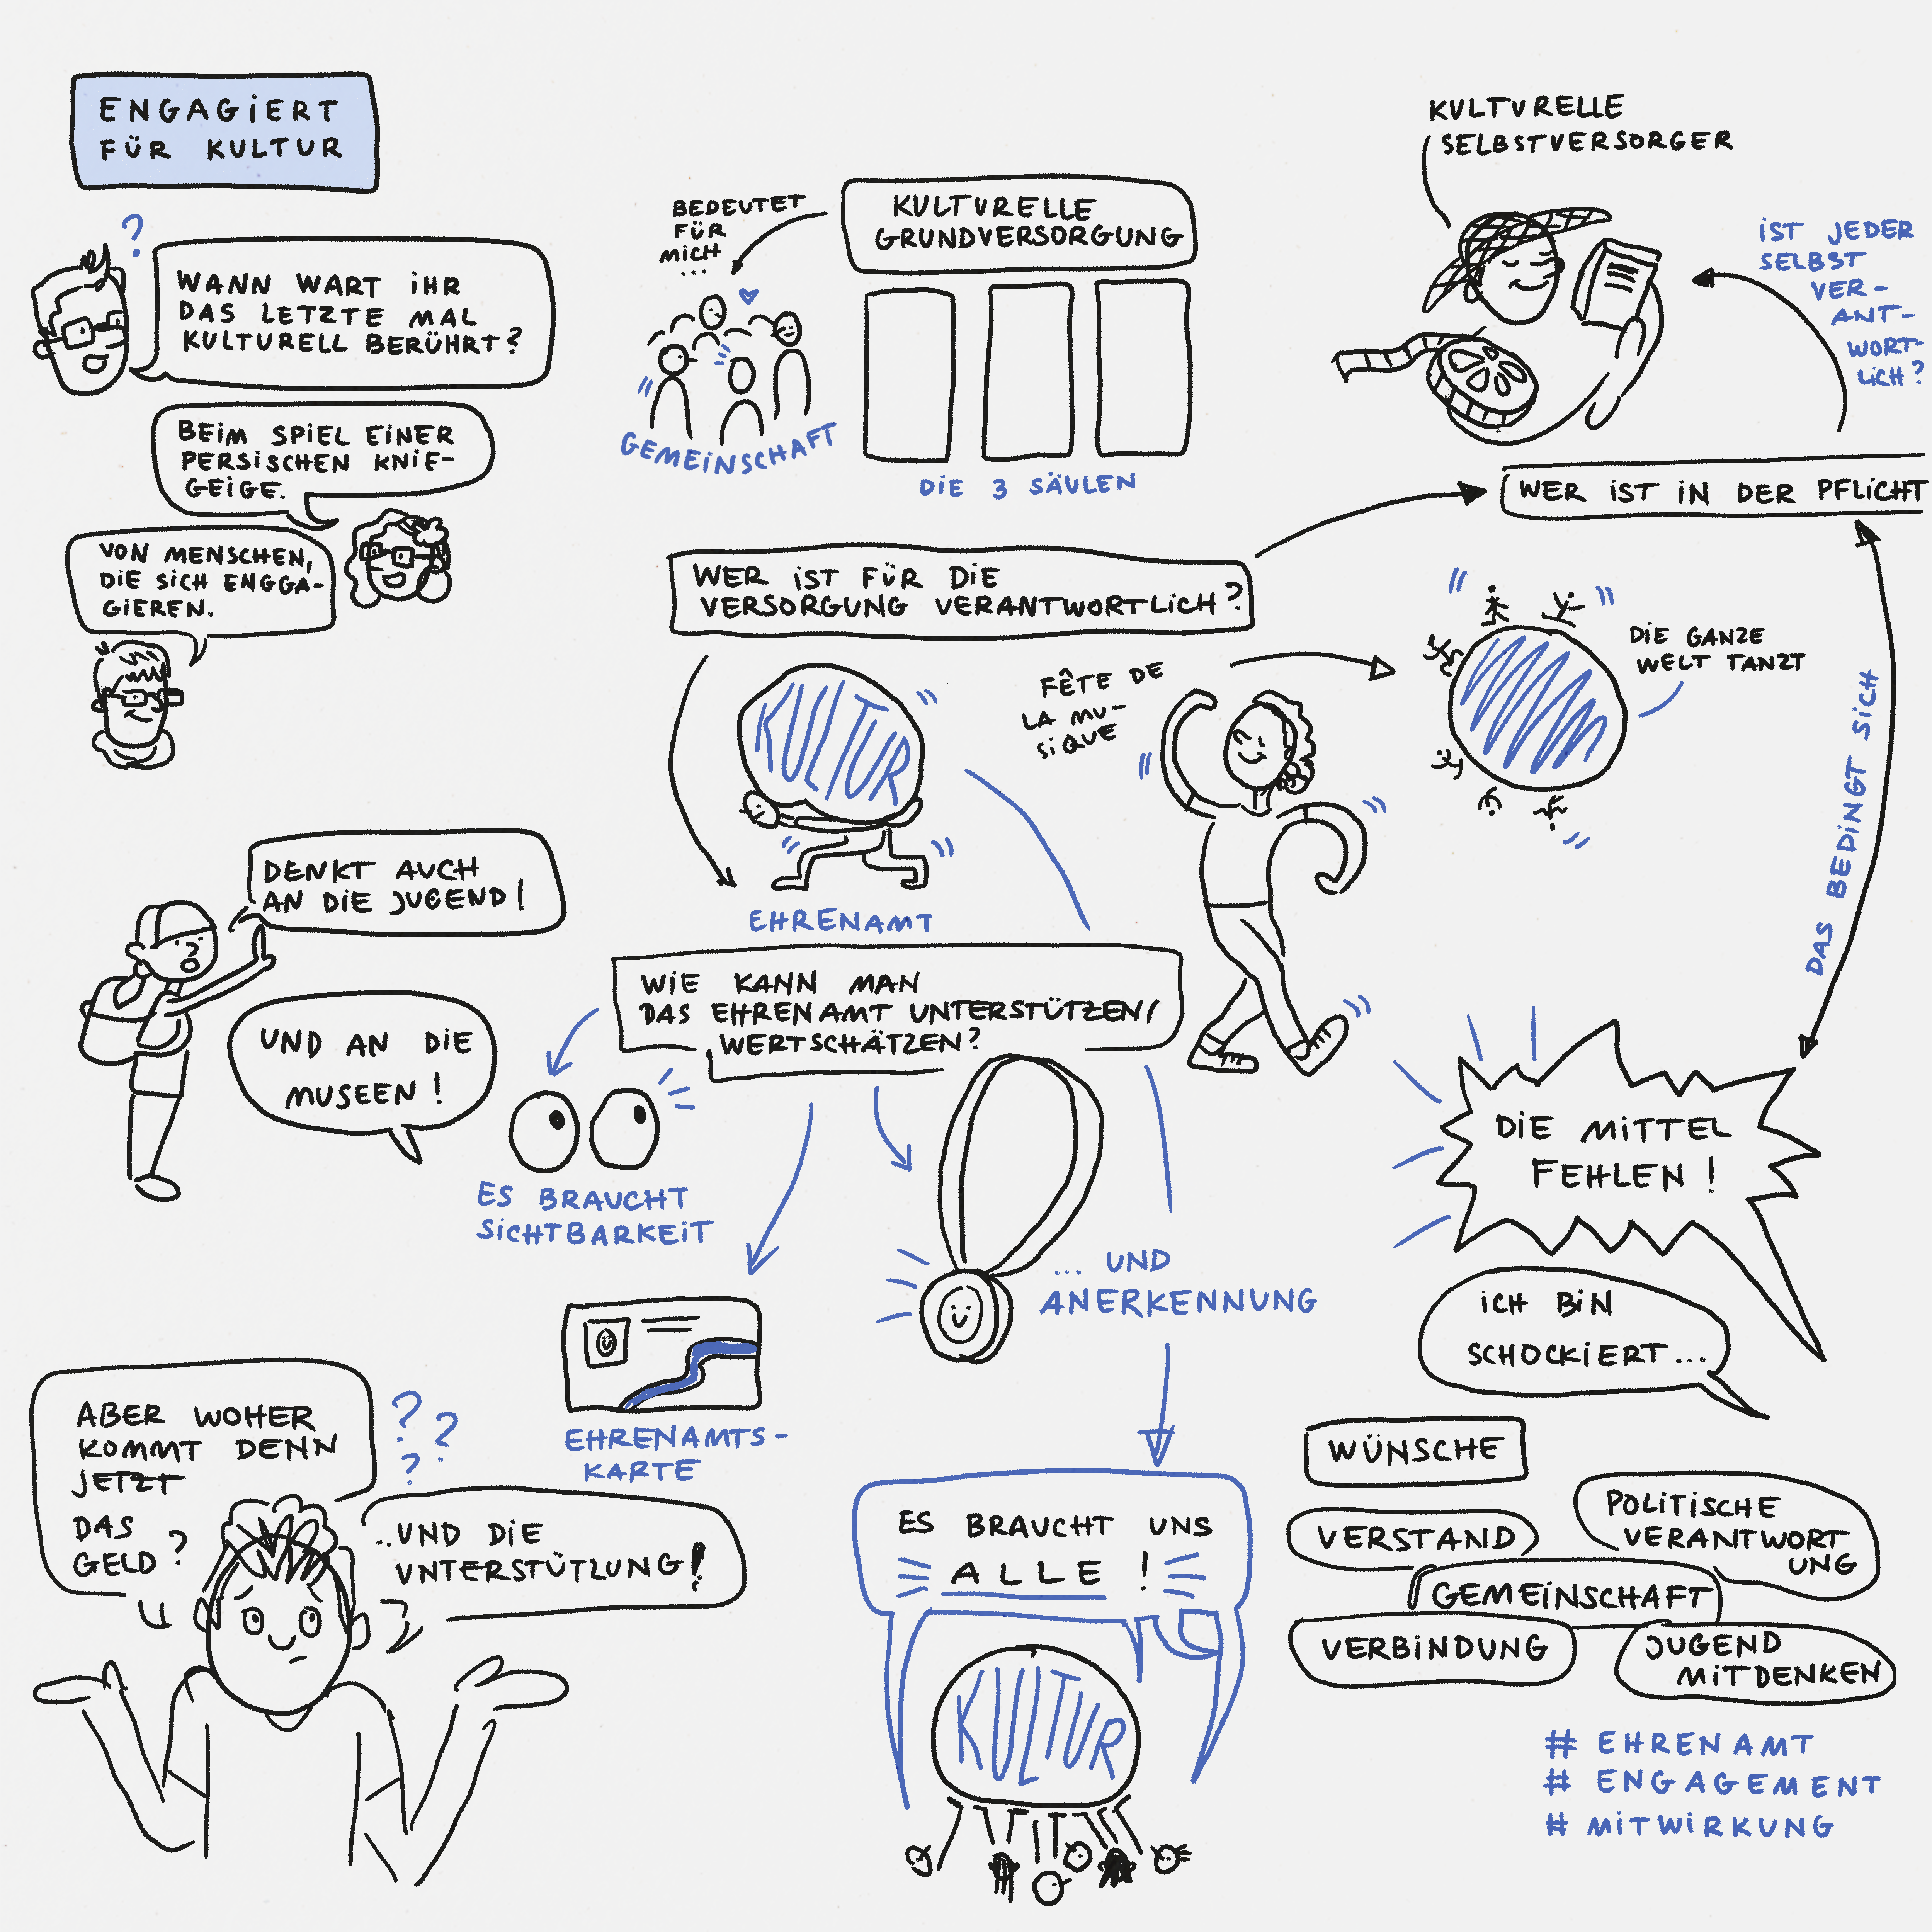 ENGAGiERT
FÜR KULTUR
?
WANN WART iHR
DAS LETZTE MAL
KULTURELL BERÜHRT?
BEiM SPiEL EiNER
PERSiSCHEN KNiE-
GEiGE.
VON MENSCHEN,
DiE SiCH ENGGA-
GiEREN.
BEDEUTET
FÜR
MiCH
...
KULTURELLE
GRUNDVERSORGUNG
GEMEiNSCHAFT
DiE 3 SÄULEN
KULTURELLE
SELBSTVERSORGER
iST JEDER
SELBST
VER-
ANT-
WORT-
LiCH?
WER iST iN DER PFLiCHT
WER iST FÜR DiE
VERSORGUNG VERANTWORTLiCH?
KULTUR
EHRENAMT
FÊTE DE
LA MU-
SiQUE
DiE GANZE
WELT TANZT
DAS BEDiNGT SiCH
DENKT AUCH
AN DiE JUGEND!
UND AN DiE
MUSEEN!
WiE KANN MAN
DAS EHRENAMT UNTERSTÜTZEN/
WERTSCHÄTZEN?
ES BRAUCHT
SiCHTBARKEiT
EHRENAMTS-
KARTE
... UND
ANERKENNUNG
DiE MiTTEL
FEHLEN!
iCH BiN
SCHOCKiERT...
ABER WOHER
KOMMT DENN
JETZT
DAS
GELD?
? ?
?
..UND DiE
UNTERSTÜTZUNG!
ES BRAUCHT UNS
ALLE!
KULTUR
WÜNSCHE
VERSTAND
POLiTiSCHE
VERANTWORT
UNG
GEMEiNSCHAFT
VERBiNDUNG
JUGEND
MiTDENKEN
# EHRENAMT
# ENGAGEMENT
# MiTWiRKUNG